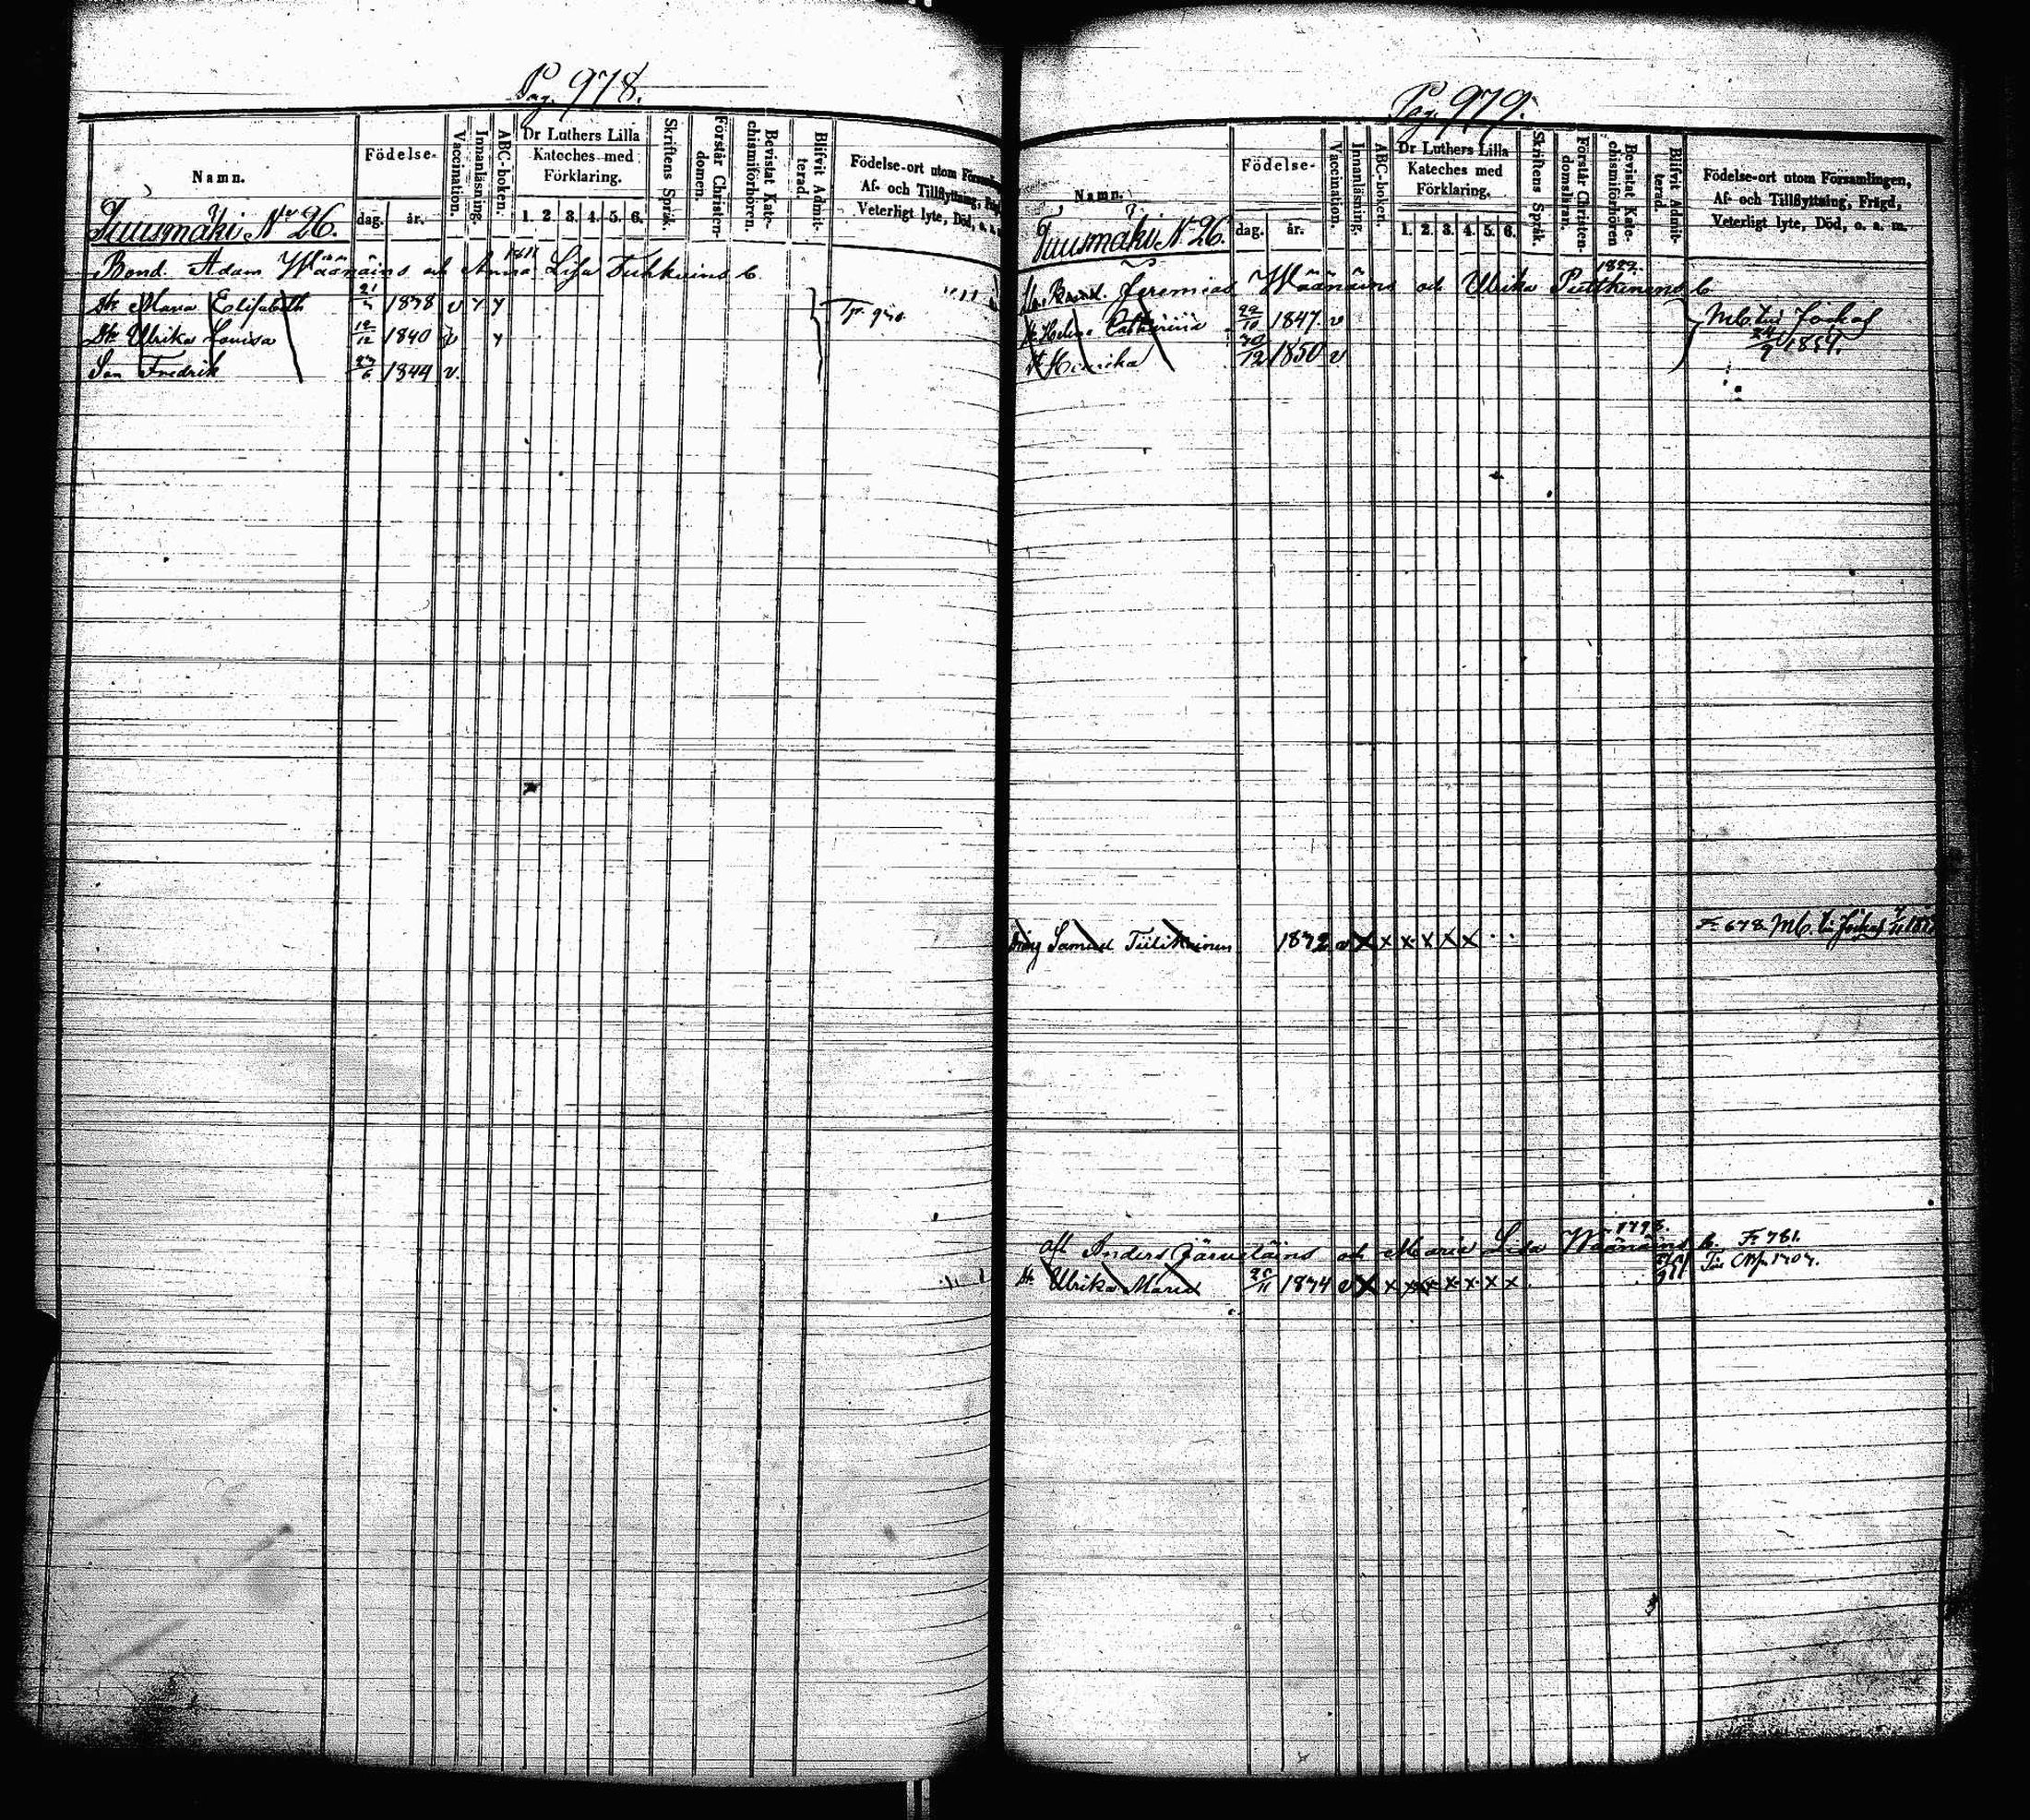 Pag. 978.
Namn.
Födelse-
dag.
år.
Vaccination.
Innanläsning.
ABC-boken.
Dr Luthers Lilla
Kateches med
Förklaring.
1. 2. 3. 4. 5. 6.
Skriftens Språk.
Förstår Christen-
domen.
Bevistat Kate-
chismiförhören.
Blifvit Admit-
terad.
Födelse-ort utom
Af- och Tillflyttning,
Veterligt lyte, Död, o. a.
Tuusmäki No 26.
Bond. Adam Wäänäins och Anna Lisa b.
Dr Maria Elisabeth 1838 v
Dr Ulrika Lovisa 12/12 1840 v
Son Fredrik 27/6 1844 v.
Pag. 979.
Namn.
Födelse-
dag.
år.
Vaccination.
Innanläsning.
ABC-boken.
Dr Luthers Lilla
Kateches med
Förklaring.
1. 2. 3. 4. 5. 6.
Skriftens Språk.
Förstår Christen-
domsläran.
Bevistat Kate-
chismiförhören
Blifvit Admit-
terad.
Födelse-ort utom Församlingen,
Af- och Tillflyttning, Frägd,
Veterligt lyte, Död, o. a. m.
Tuusmäki N 26.
Jeremias Wäänäins och Ulrika b.
Dr Helena Catharina 22/10 1847. v
Dr Henrika 1850 v
Samuel Tiilikainen 1872 v x x x x x x
F. 678
1798.
Anders Järveläins och Maria Lisa Wäänäins b. F. 781.
Dr Ulrika Maria 1874 v x x x x x x x x